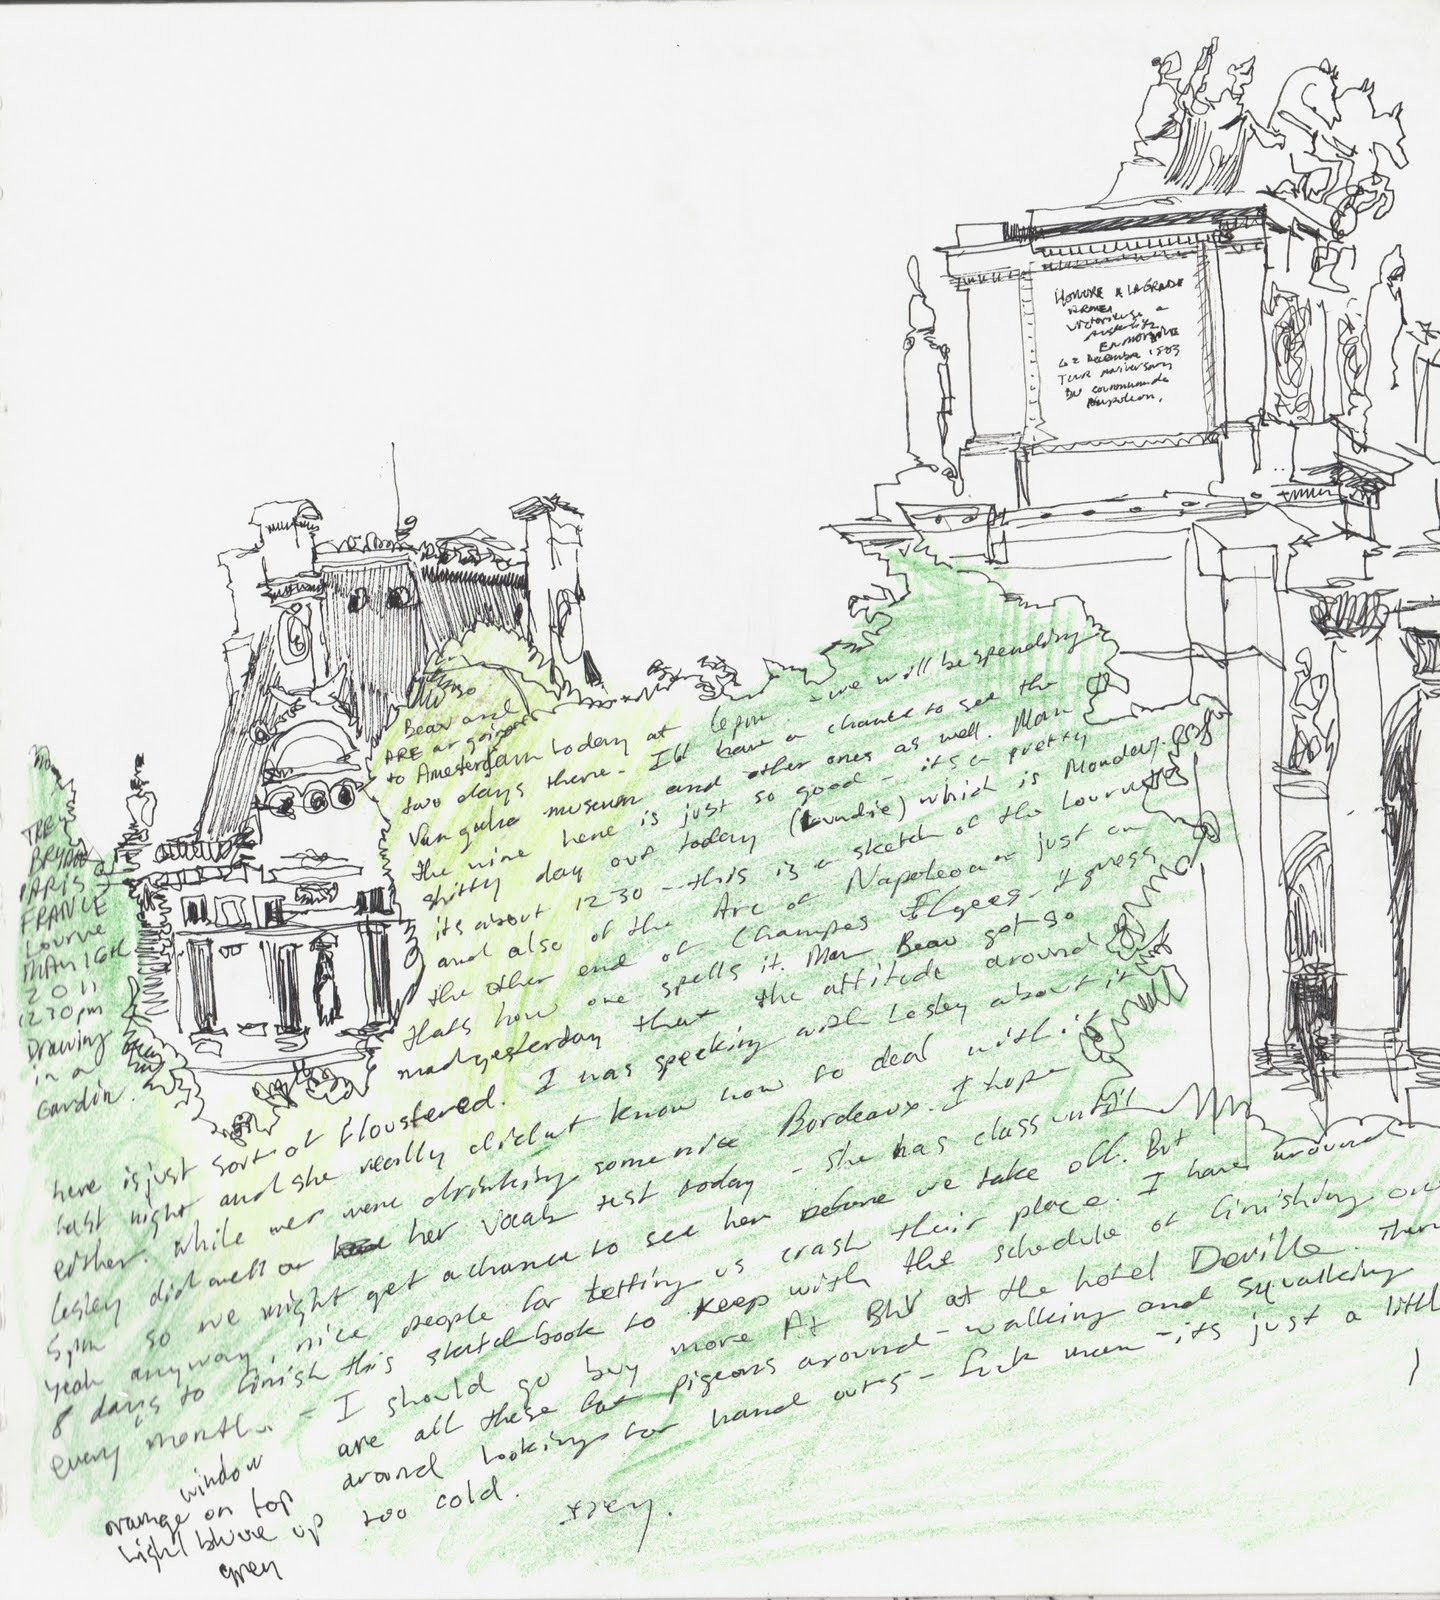 HONURE A LAGRADE
ARMEE
Victorieuse a
Austerlitz
EN MORAVIE
Le 2 Decembre 1803
Jour Aniversary
DU couronnment de
Napoleon.
TREY
BRYAN
PARIS
FRANCE
Lourve
MAY 16th
2011
1230pm
Drawing
in a
Gardin.
Beau and
ARE ar going
to Amesterdam today at 6pm - we will be spending
two days there - I'd have a chance to see the
Van gohe museum and other ones as well. Man
the wine here is just so good - its a pretty
shitty day out today (Loundie) which is Monday.
its about 1230 - this is a sketch of the Lourve
and also of the Arc of Napoleon or just on
the other end of Champes Elyees - I guess
thats how one spells it. Man Beau got so
mad yesterday that the attitude around
here is just sort of floustered. I was speeking with Lesley about it
last night and she really didnt know how to deal with it
either. While we were drinking some nice Bordeaux. I hope
Lesley did well on her Vocab test today - she has class until
5pm so we might get a chance to see her before we take off. But
yeah anyway, nice people for letting us crash their place. I have around
8 days to finish this sketchbook to keep with the schedule of finishing one
every month. - I should go buy more At BHV at the hotel Deville. There
are all these fat pigeons around - walking and squalking
around looking for hand outs - fuck man - its just a little
too cold.
trey.
window
orange on top
Light blue up
grey